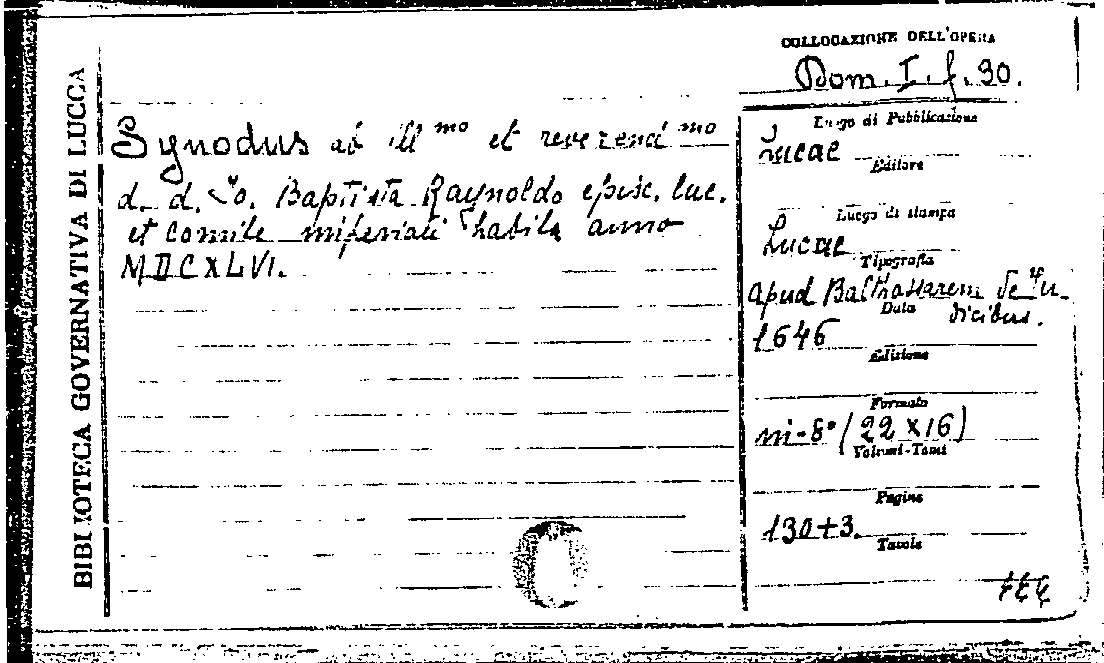 BIBLIOTECA GOVERNATIVA DI LUCCA
COLLOCAZIONE DELL'OPERA
Dom. I. f. 30.
Synodus ab ill mo et reverend mo
d. d. Io. Baptista Raynoldo episc. luc.
et comite imperiali habita anno
MDCXLVI.
Luogo di Pubblicazione
Lucae
Editore
Luogo di stampa
Lucae
Tipografia
apud Balthassarem de Iu-
dicibus.
Data
1646
Edizione
Formato
in-8° (22 x 16)
Volumi-Tomi
Pagine
130+3.
Tavole